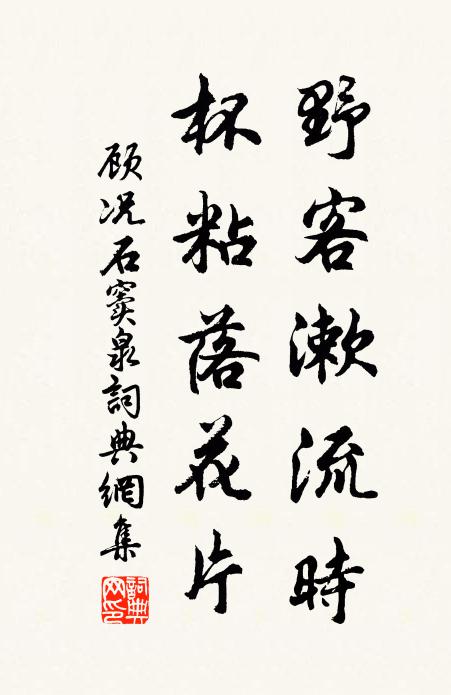 野客漱流時
杯粘落花片
顾况石窦泉詞典網集
詞典网印